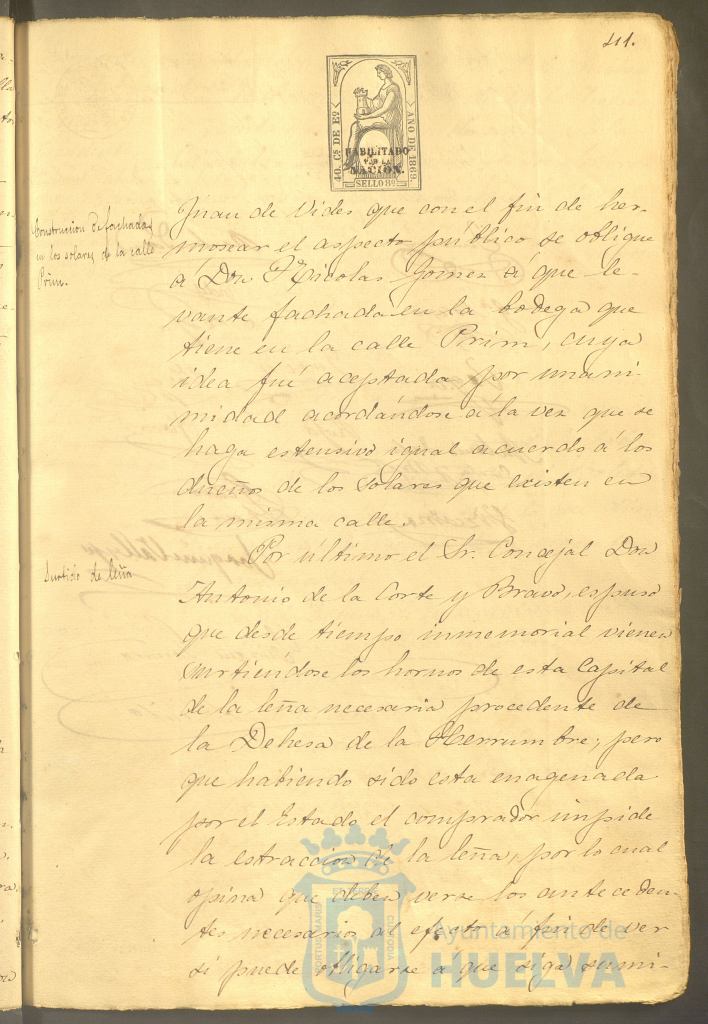 111.
40. Cs. DE Eo.
AÑO DE 1869.
HABILITADO
POR LA
NACION.
SELLO 8o.
Construccion de fachadas
en los solares de la calle
Prim.
Juan de Vides que con el fin de her-
mosear el aspecto público se obligue
a Don Nicolas Gomez á que le-
vante fachada en la bodega que
tiene en la calle Prim, cuya
idea fué aceptada por unani-
midad acordándose á la vez que se
haga estensivo igual acuerdo á los
dueños de los solares que existen en
la misma calle.
Surtido de leña
Por último el Sr. Concejal Don
Antonio de la Corte y Bravo, espuso
que desde tiempo inmemorial vienen
surtiéndose los hornos de esta Capital
de la leña necesaria procedente de
la Dehesa de la Herrumbre; pero
que habiendo sido esta enagenada
por el Estado el comprador impide
la estraccion de la leña, por lo cual
opina que deben verse los anteceden-
tes necesarios al efecto á fin de ver
si puede obligarse a que siga sumi-
Ayuntamiento de
HUELVA